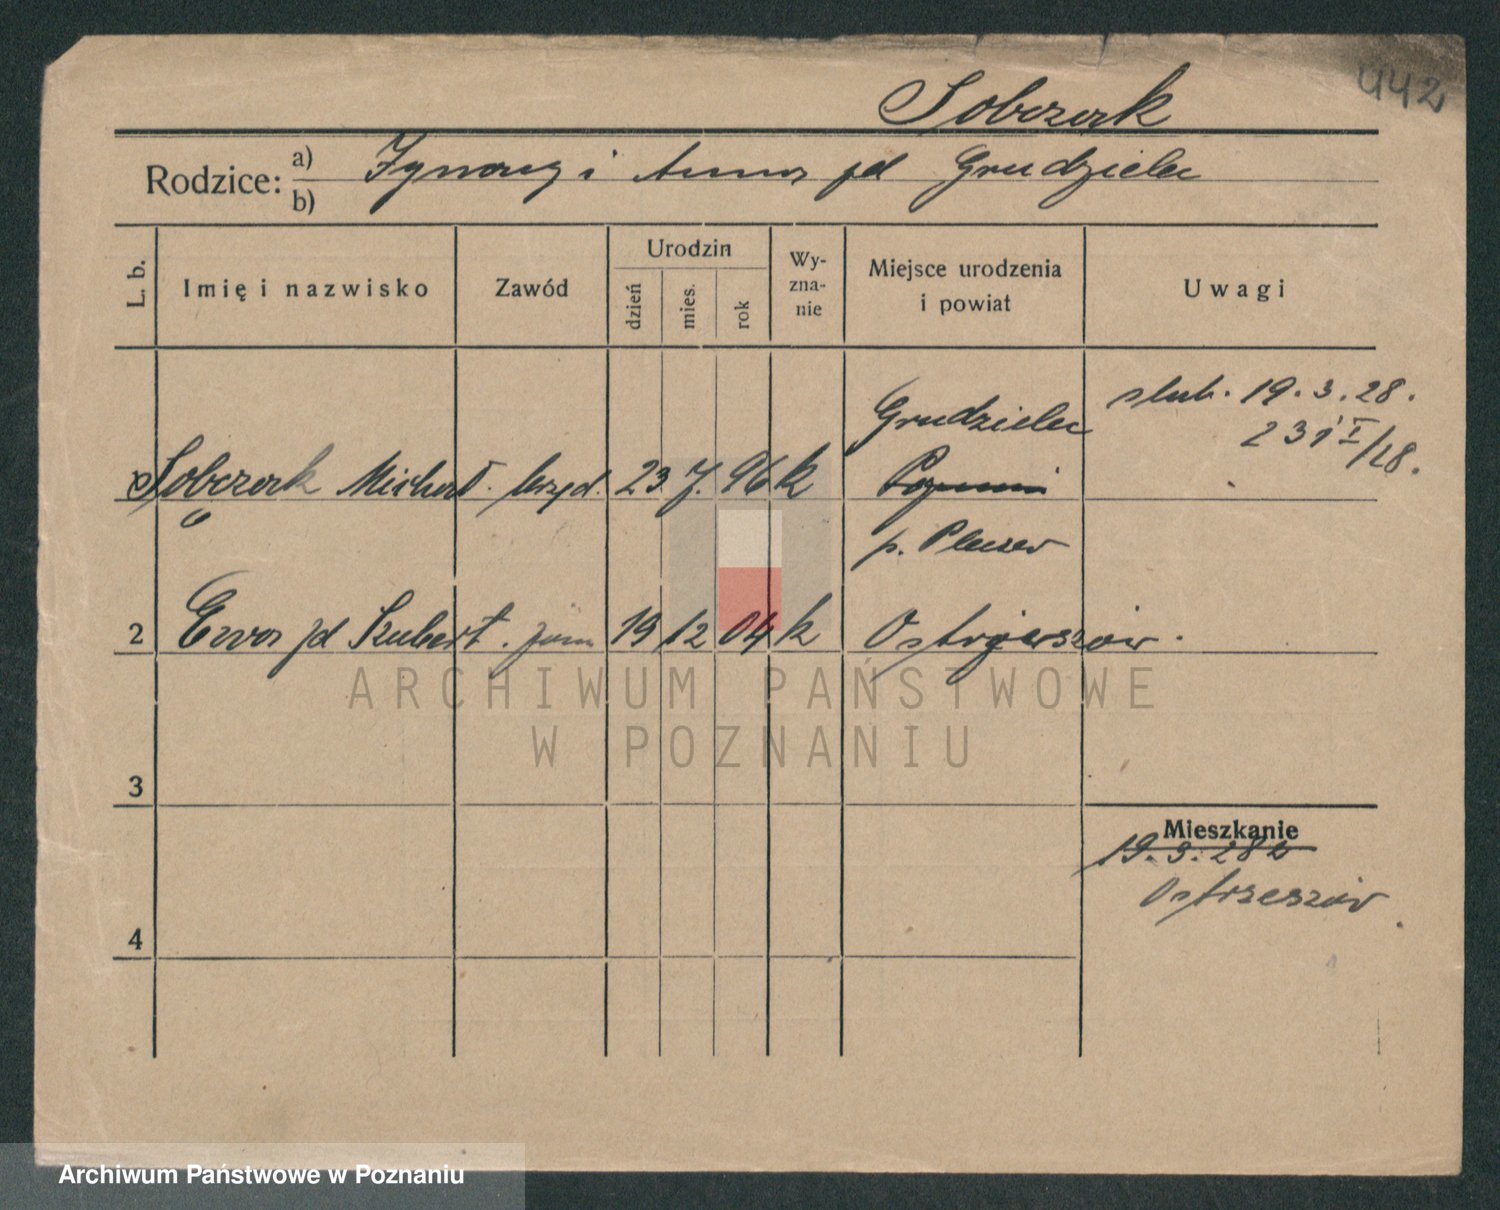 442
Sobczak
Rodzice:
a) Ignacy i Anna jd Grudzielec
b)
L. b.
Imię i nazwisko
Zawód
Urodzin
dzień
mies.
rok
Wy-
zna-
nie
Miejsce urodzenia
i powiat
Uwagi
Grudzielec
slub. 19.3.28.
231 I/28.
Sobczak Michał. urzęd. 23 7. 96 k
p. Pleszew
2 Ewa jd Szubert. 19 12 04 k Ostrzeszów.
3
Mieszkanie
19.3.28 z
Ostrzeszów
4
ARCHIWUM PAŃSTWOWE
W POZNANIU
Archiwum Państwowe w Poznaniu